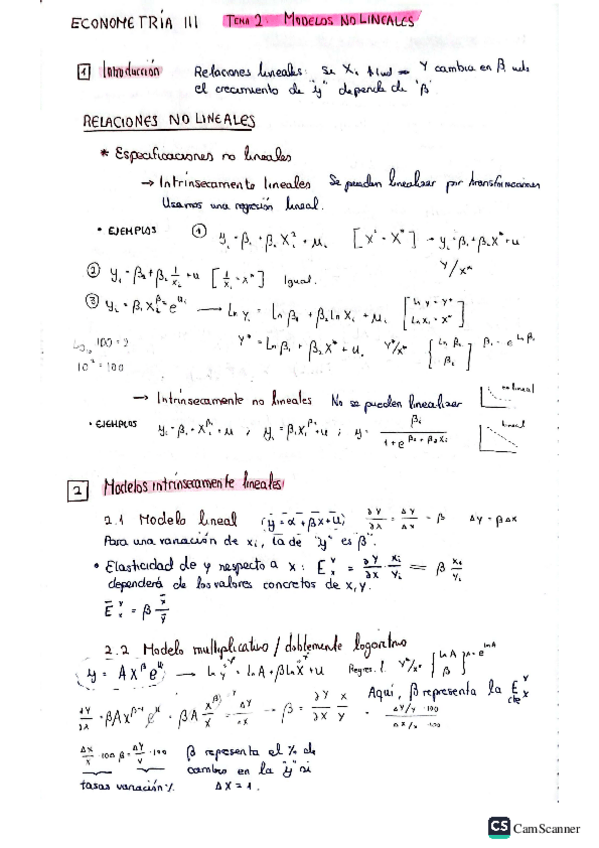 ECONOMETRÍA III TEMA 2: MODELOS NO LINEALES
1 Introducción Relaciones lineales: si Xi Y cambia en β uds
el crecimiento de "y" depende de "β".
RELACIONES NO LINEALES
* Especificaciones no lineales
→ Intrínsecamente lineales Se pueden linealizar por transformaciones
Usamos una regresión lineal.
• EJEMPLOS ① [X² = X*] → yi = β1 + β2X* + u
Y/X*
② yi = β1 + β2 1/xi + u [1/xi = x*] Igual.
③ → Ln yi = Ln β1 + β2 ln Xi + ui [ln y = Y* ln xi = X*]
Log10 100 = 2 Y* = Ln β1 + β2 X* + ui Y*/X*
10² = 100
→ Intrínsecamente no lineales No se pueden linealizar no lineal
• EJEMPLOS lineal
2 Modelos intrínsecamente lineales
2.1 Modelo lineal (y = α + βx + u) ∂Y/∂X = ΔY/ΔX = β ΔY = βΔX
Para una variación de xi, la de "y" es β.
• Elasticidad de y respecto a x: E = ∂Y/∂X Xi/Yi = β Xi/Yi
dependerá de los valores concretos de x, y.
2.2 Modelo multiplicativo / doblemente logarítmo
y = AX^β e^u → Ln y = ln A + β ln X + u Regres. l. Y*/X*
Aquí, β representa la E
β = ∂Y/∂X X/Y = ΔY/Y · 100 / ΔX/X · 100 cte
β representa el % de
cambio en la "y" si
tasas variación %. ΔX = 1.
CS CamScanner